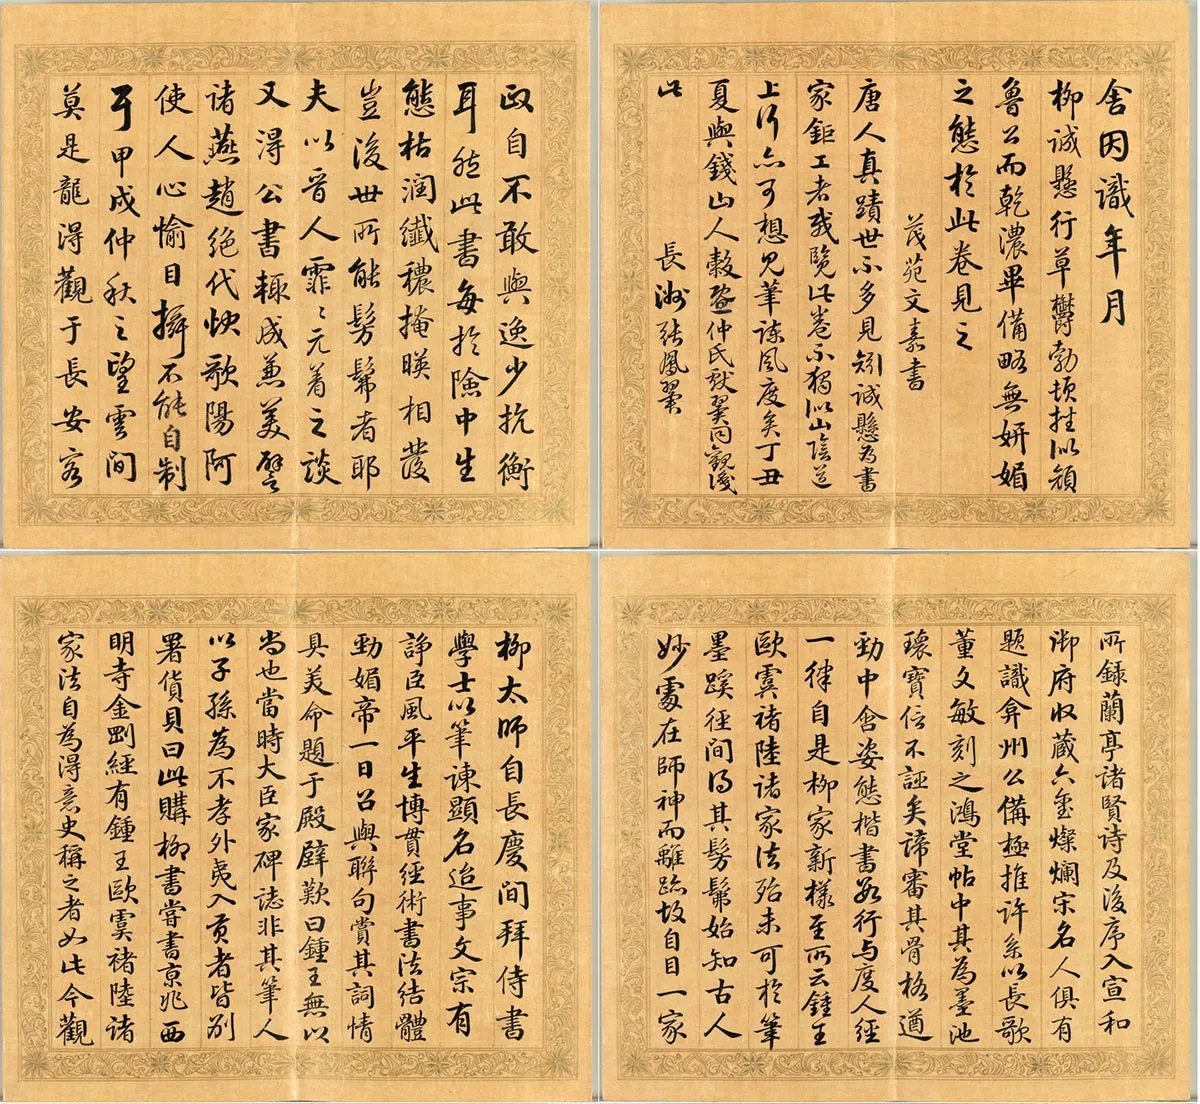 政自不敢與逸少抗衡
耳然此書每於險中生
態枯潤纖穠掩映相發
豈後世所能髣髴者耶
夫以晉人霏〻元著之談
又得公書輒成兼美譬
諸燕趙絕代快歌陽阿
使人心愉目搖不能自制
耳甲戌仲秋之望雲間
莫是龍得觀于長安客
舍因識年月
柳誠懸行草鬱勃頓挫似顏
魯公而乾濃畢備略無妍媚
之態於此卷見之
茂苑文嘉書
唐人真蹟世不多見矧誠懸為書
家鉅工者或覽此卷不獨似山陰道
上行亦可想見筆諫風度矣丁丑
夏與錢山人穀暨仲氏獻翼同觀識
此
長洲張鳳翼
柳太師自長慶間拜侍書
學士以筆諫顯名迨事文宗有
諍臣風平生博貫經術書法結體
勁媚帝一日召與聯句賞其詞情
具美命題于殿壁歎曰鍾王無以
尚也當時大臣家碑誌非其筆人
以子孫為不孝外夷入貢者皆別
署貨貝曰此購柳書嘗書京兆西
明寺金剛經有鍾王歐虞褚陸諸
家法自為得意史稱之者如此今觀
所錄蘭亭諸賢詩及後序入宣和
御府收藏六璽燦爛宋名人俱有
題識弇州公備極推許系以長歌
董文敏刻之鴻堂帖中其為墨池
瓌寶信不誣矣諦審其骨格遒
勁中含姿態楷書為行与度人經
一律自是柳家新樣至所云鍾王
歐虞褚陸諸家法殆未可於筆
墨蹊徑間得其髣髴始知古人
妙處在師神而離跡故自目一家